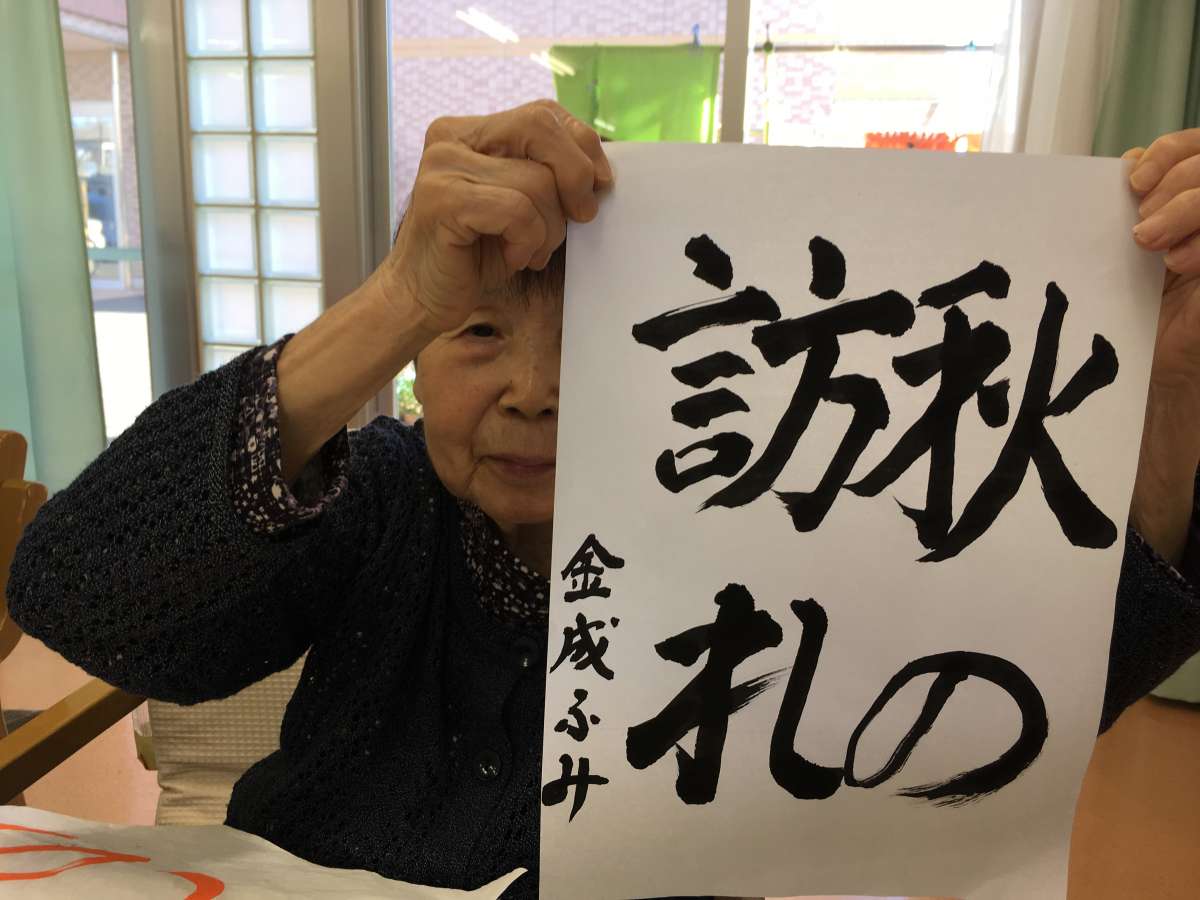 秋の
訪れ
金成ふみ